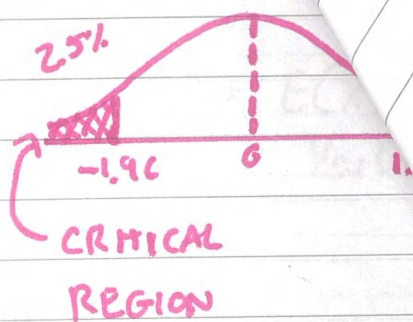 25%
-1.96 0 1.
CRITICAL
REGION